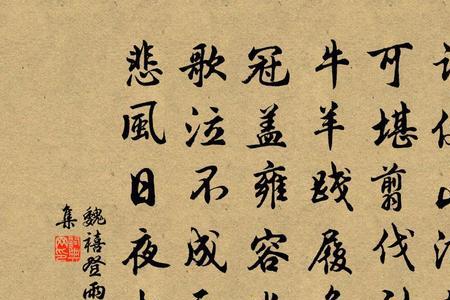 可堪翦伐
牛羊践履
冠盖雍容
歌泣不成
悲風日夜
魏禧登雨
集